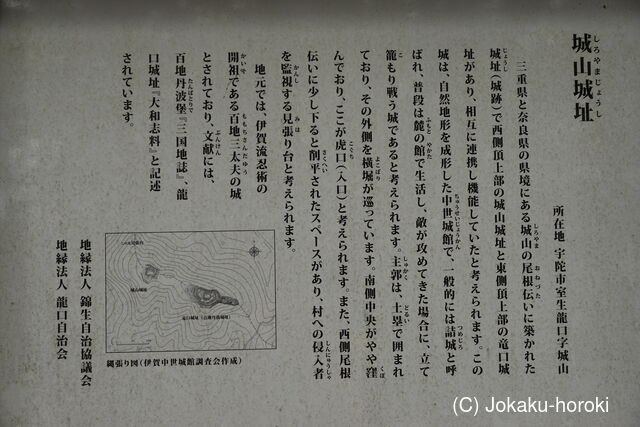 城山城址
しろやまじょうし
所在地 宇陀市室生龍口字城山
三重県と奈良県の県境にある城山の尾根伝いに築かれた
城址(城跡)で西側頂上部の城山城址と東側頂上部の竜口城
址があり、相互に連携し機能していたと考えられます。この
城は、自然地形を成形した中世城館で、一般的には詰城と呼
ばれ、普段は麓の館で生活し、敵が攻めてきた場合に、立て
籠もり戦う城であると考えられます。主郭は、土塁で囲まれ
ており、その外側を横堀が巡っています。南側中央がやや窪
んでおり、ここが虎口(入口)と考えられます。また、西側尾根
伝いに少し下ると削平されたスペースがあり、村への侵入者
を監視する見張り台と考えられます。
地元では、伊賀流忍術の
開祖である百地三太夫の城
とされており、文献には、
百地丹波堡『三国地誌』、龍
口城址『大和志料』と記述
されています。
縄張り図(伊賀中世城館調査会作成)
地縁法人 錦生自治協議会
地縁法人 龍口自治会
(C) Jokaku-horoki